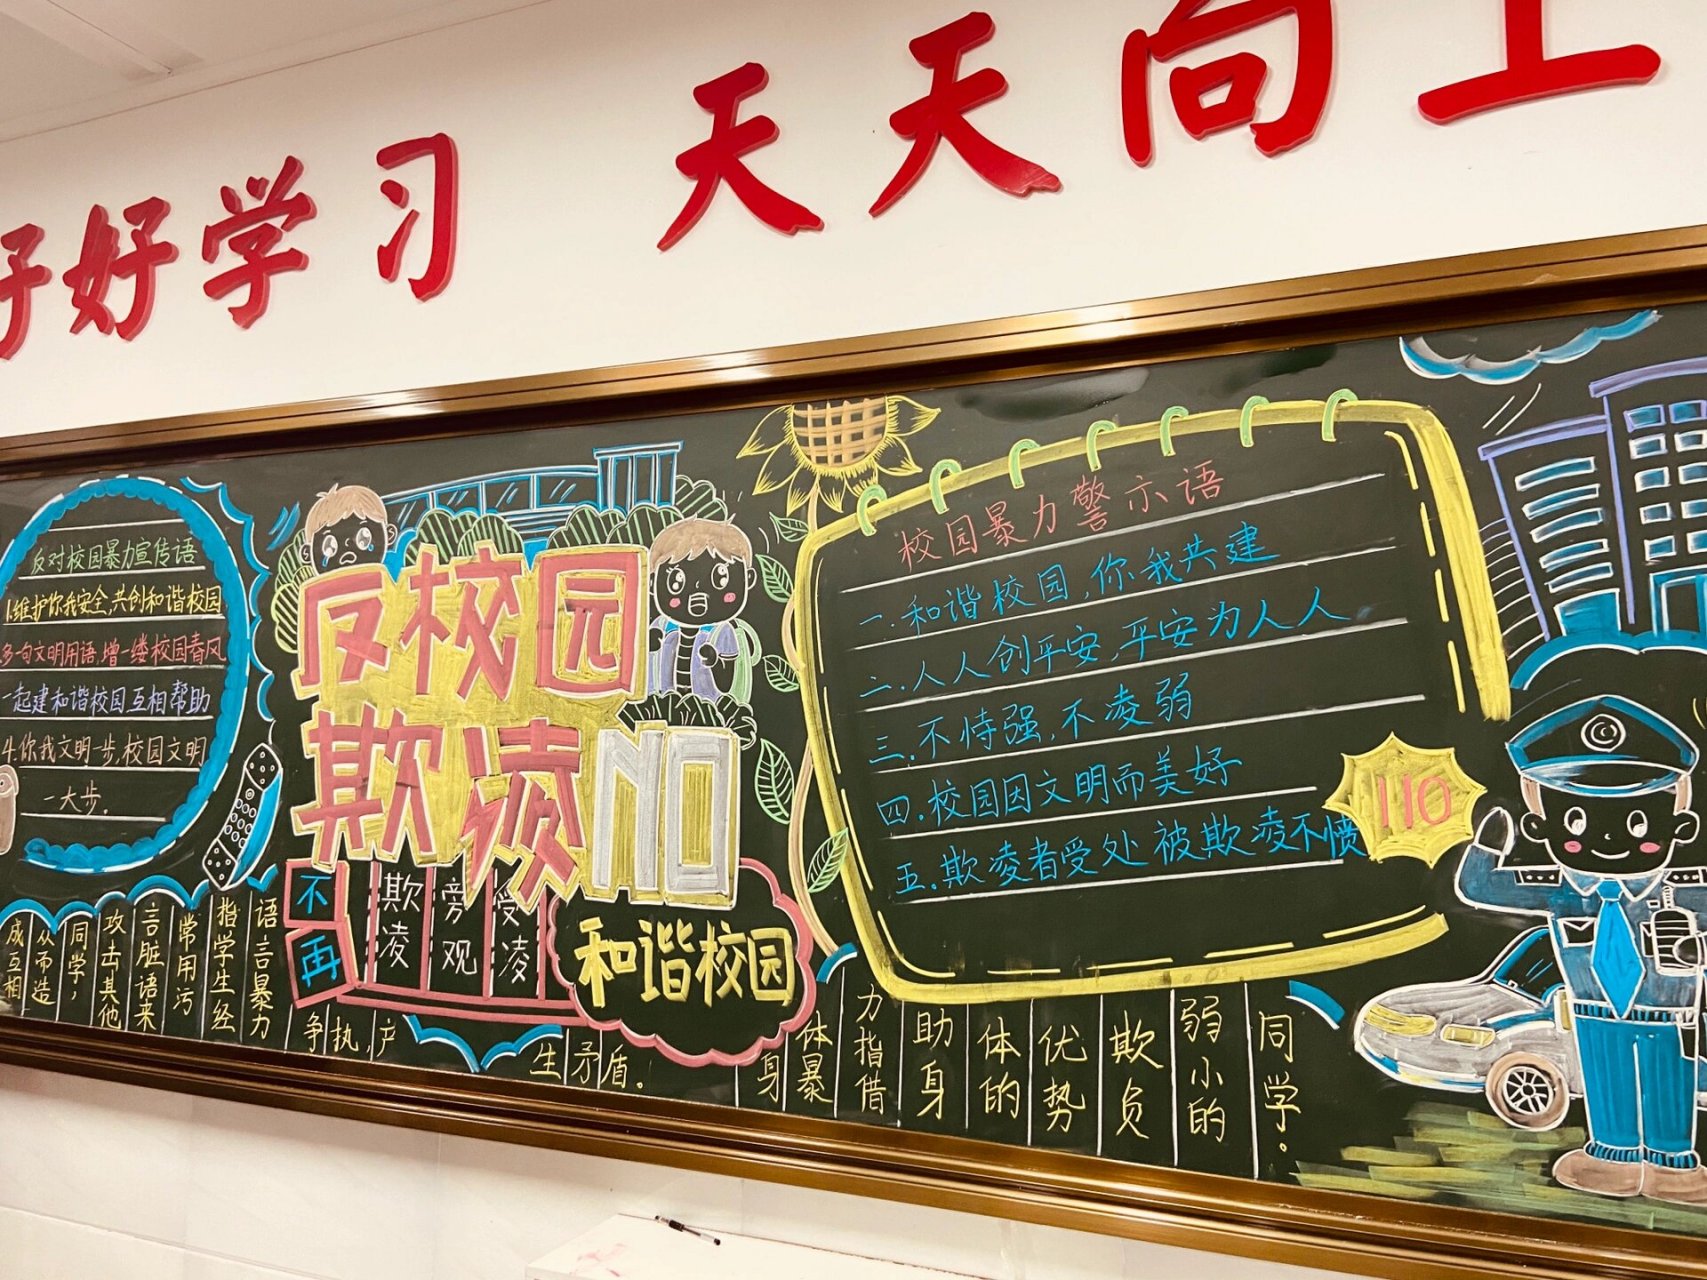 好好学习 天天向上
反对校园暴力宣传语
1.维护你我安全,共创和谐校园
多一句文明用语,增一缕校园春风
一起建和谐校园互相帮助
4.你我文明一步,校园文明
一大步.
反校园
欺凌NO
不再
欺凌
旁观
受凌
和谐校园
校园暴力警示语
一.和谐校园,你我共建
二.人人创平安,平安为人人
三.不恃强,不凌弱
四.校园因文明而美好
五.欺凌者受处 被欺凌不愤
110
语言暴力
指学生经
常用污
言脏语来
攻击其他
同学,
从而造
成互相
争执,产
生矛盾。
身
体暴
力指借
助身
体的
优势
欺负
弱小的
同学。